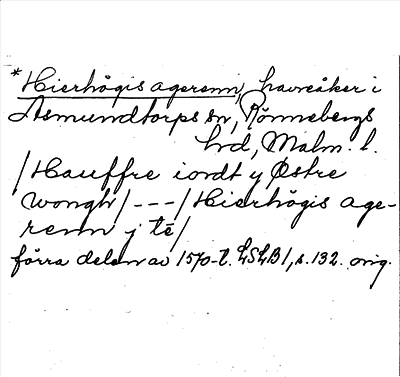 *Hierhögis agerenn, havreåker i
Asmundtorps sn, Rönnebergs
hd, Malm. l.
/Hauffre iordt y Østre
wongh/---/Hierhögis age-
renn j té/
förra delen av 1570-t. LSLB1, s. 132. orig.